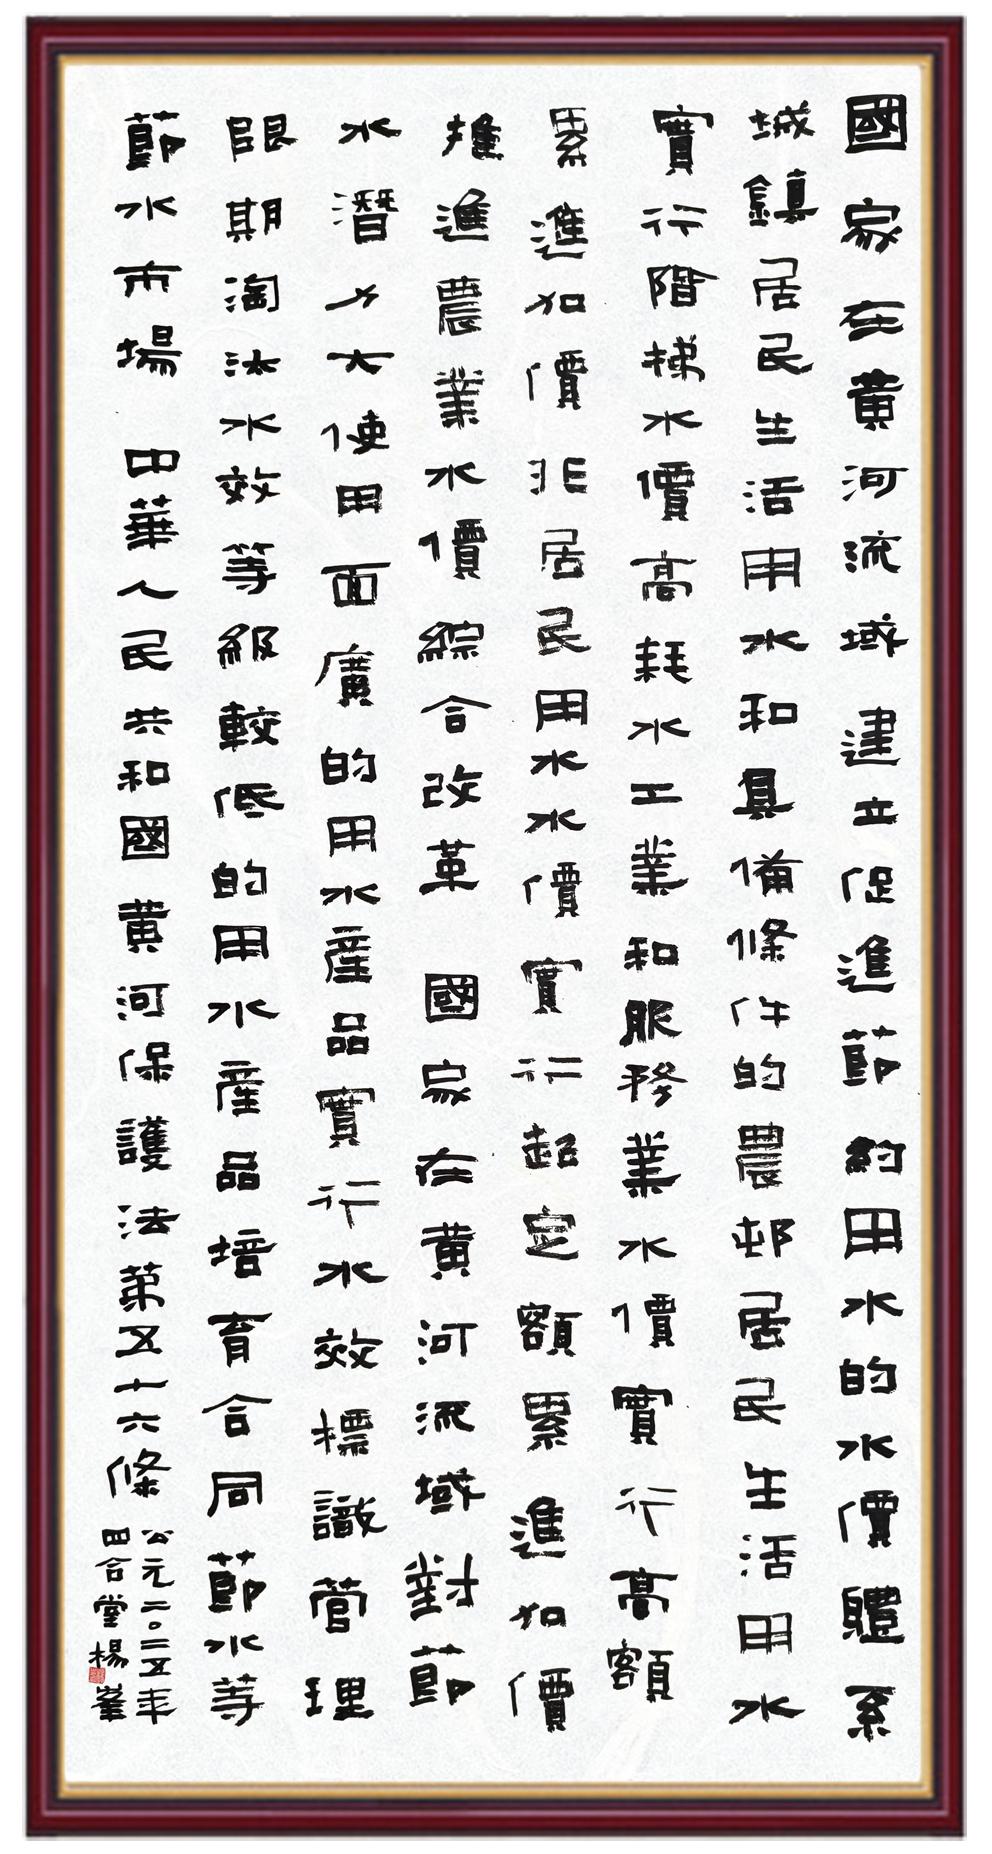 國家在黄河流域建立促進節約用水的水價體系
城鎮居民生活用水和具備條件的農邨居民生活用水
實行階梯水價高耗水工業和服務業水價實行高額
累進加價非居民用水水價實行超定額累進加價
推進農業水價綜合改革 國家在黄河流域對節
水潛力大使用面廣的用水產品實行水效標識管理
限期淘汰水效等級較低的用水產品培育合同節水等
節水市場 中華人民共和國黄河保護法第五十六條
公元二〇二五年
四合堂楊峯